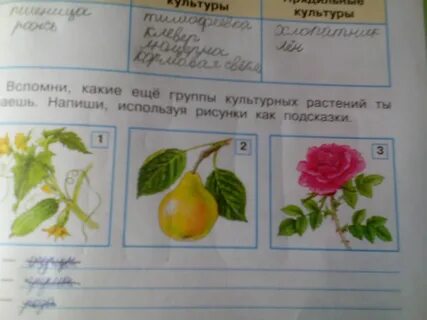 культуры
Прядильные культуры
пшеница
рожь
тимофеевка
клевер
люцерна
кормовая свёкла
хлопчатник
лён
Вспомни, какие ещё группы культурных растений ты
аешь. Напиши, используя рисунки как подсказки.
1
2
3
роза